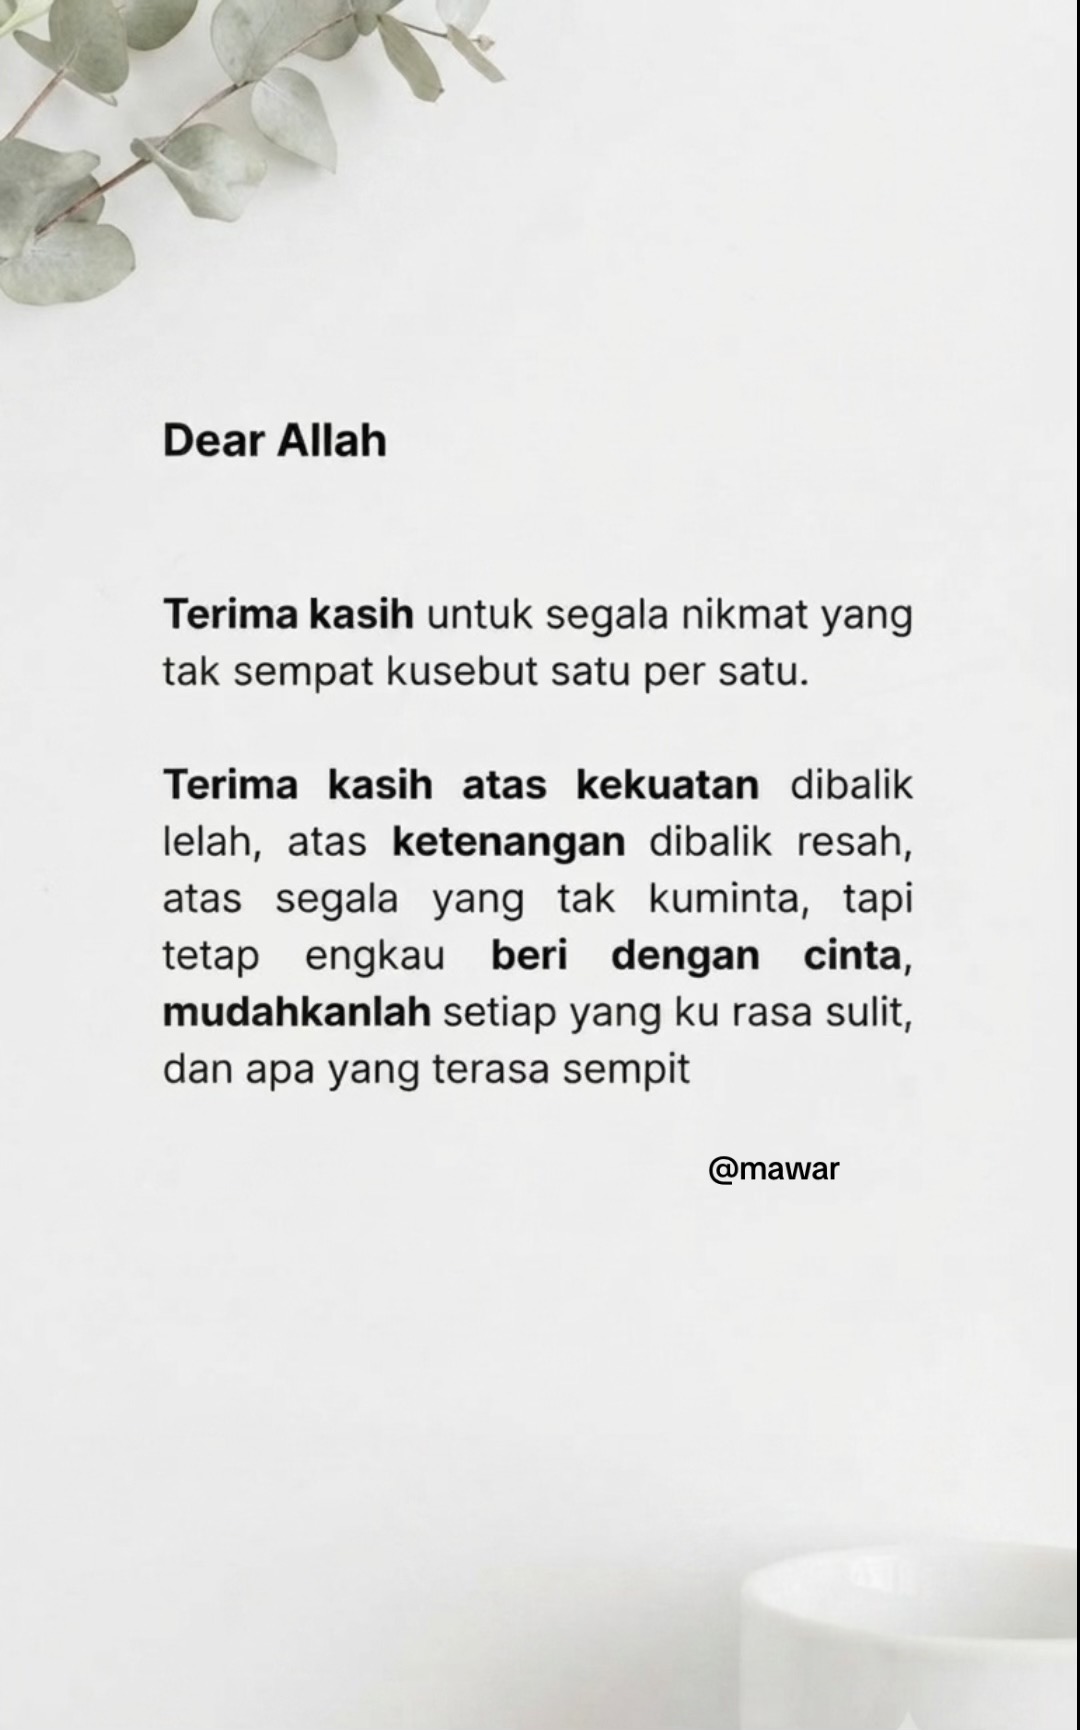 Dear Allah
Terima kasih untuk segala nikmat yang
tak sempat kusebut satu per satu.
Terima kasih atas kekuatan dibalik
lelah, atas ketenangan dibalik resah,
atas segala yang tak kuminta, tapi
tetap engkau beri dengan cinta,
mudahkanlah setiap yang ku rasa sulit,
dan apa yang terasa sempit
@mawar